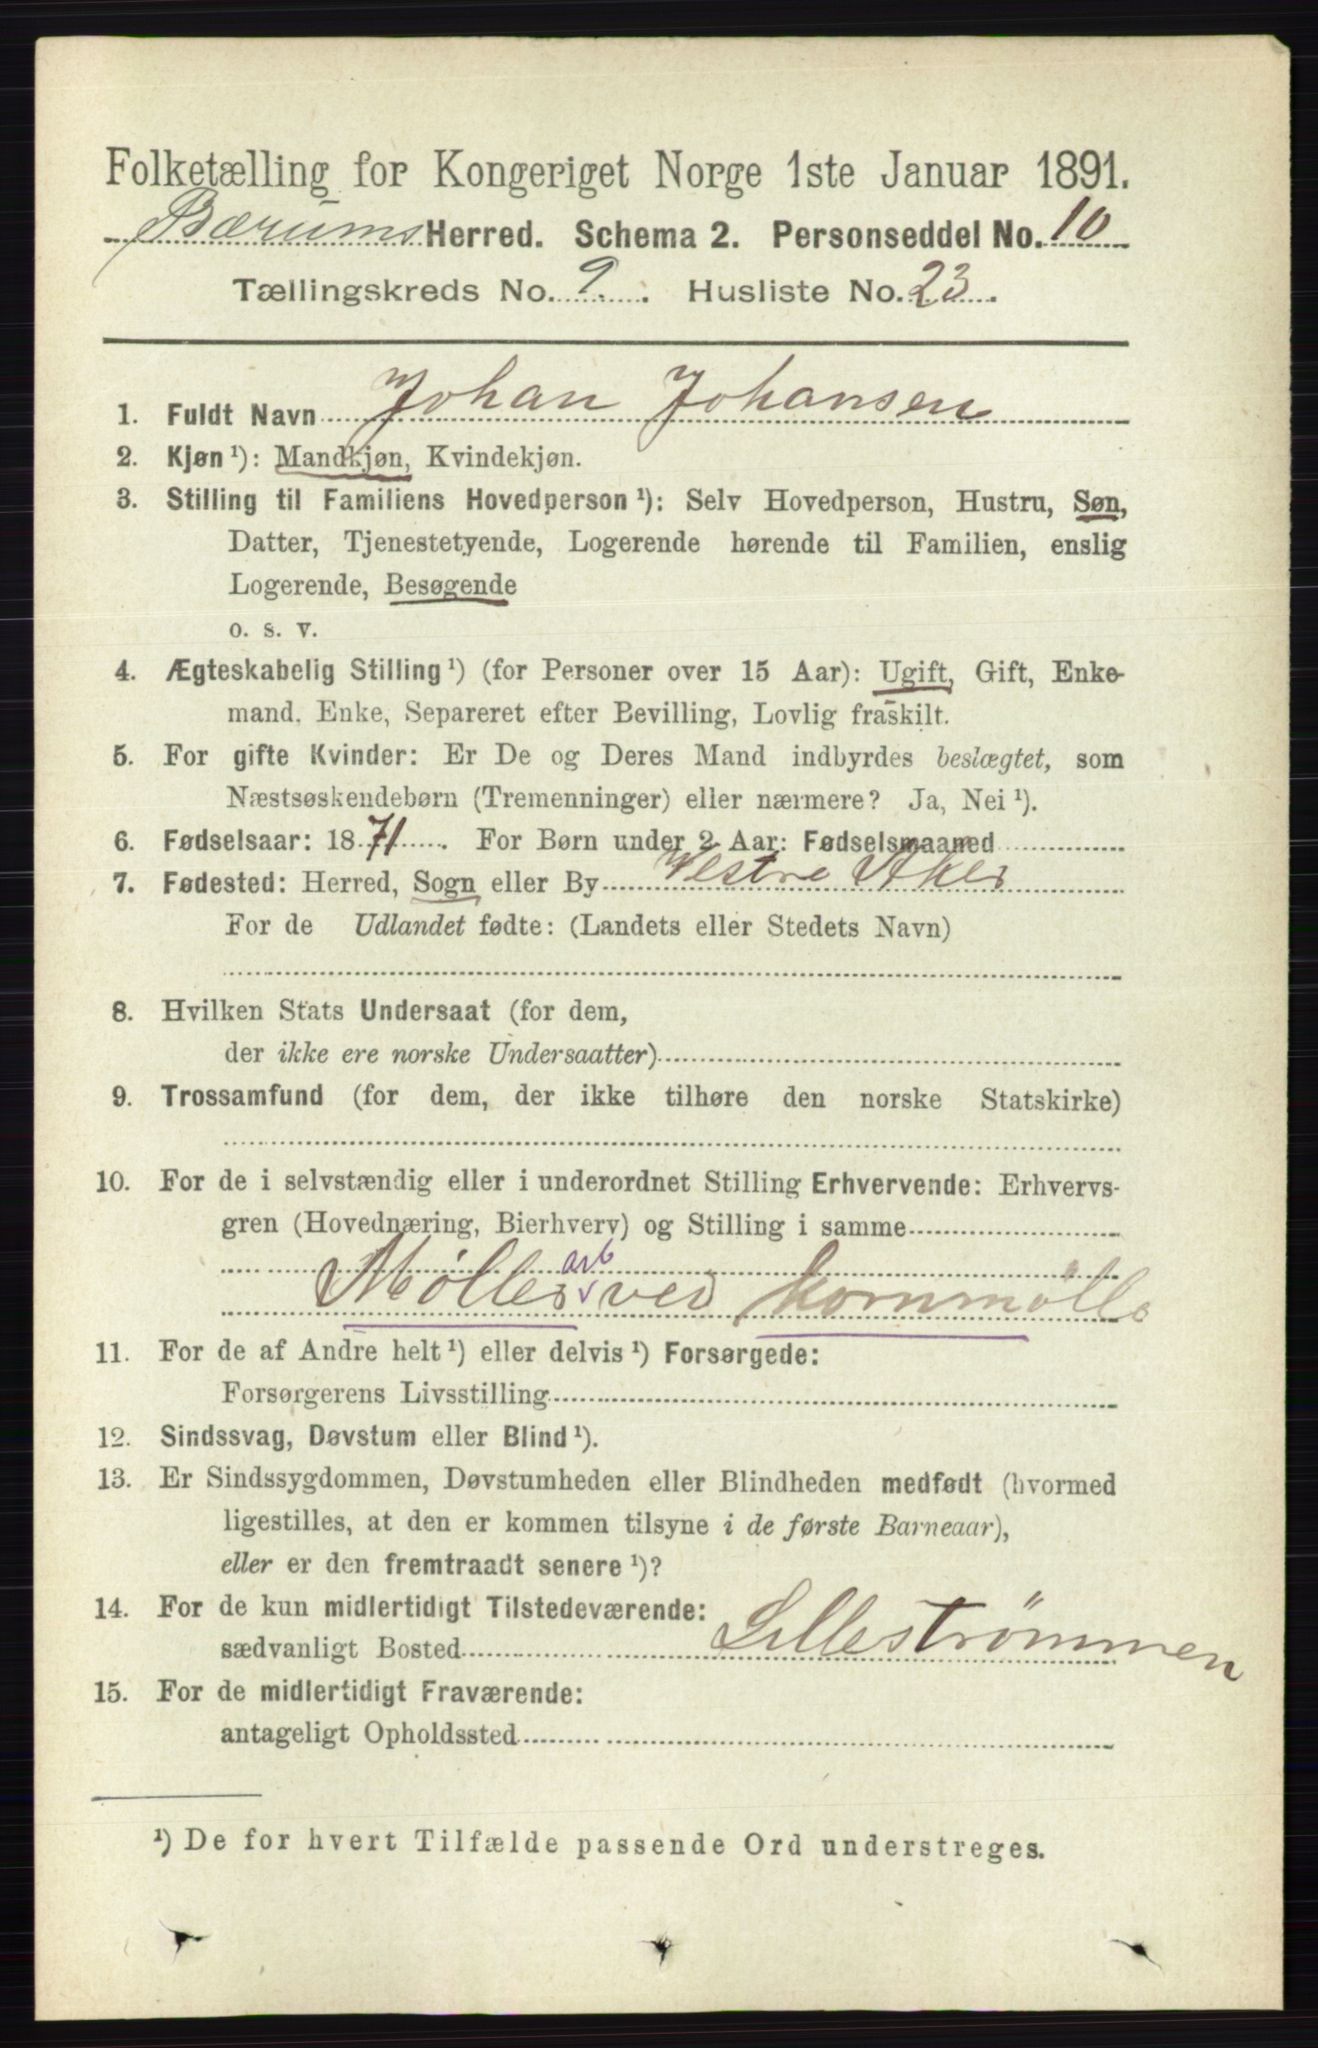 Folketælling for Kongeriget Norge 1ste Januar 1891.
Bærums Herred. Schema 2. Personseddel No. 10
Tællingskreds No. 9. Husliste No. 23.
1. Fuldt Navn Johan Johansen
2. Kjøn¹): Mandkjøn, Kvindekjøn.
3. Stilling til Familiens Hovedperson¹): Selv Hovedperson, Hustru, Søn,
Datter, Tjenestetyende, Logerende hørende til Familien, enslig
Logerende, Besøgende
o. s. v.
4. Ægteskabelig Stilling¹) (for Personer over 15 Aar): Ugift, Gift, Enke-
mand, Enke, Separeret efter Bevilling, Lovlig fraskilt.
5. For gifte Kvinder: Er De og Deres Mand indbyrdes beslægtet, som
Næstsøskendebørn (Tremenninger) eller nærmere? Ja, Nei¹).
6. Fødselsaar: 1871. For Børn under 2 Aar: Fødselsmaaned
7. Fødested: Herred, Sogn eller By Vestre Aker
For de Udlandet fødte: (Landets eller Stedets Navn)
8. Hvilken Stats Undersaat (for dem,
der ikke ere norske Undersaatter)
9. Trossamfund (for dem, der ikke tilhøre den norske Statskirke)
10. For de i selvstændig eller i underordnet Stilling Erhvervende: Erhvervs-
gren (Hovednæring, Bierhverv) og Stilling i samme
arb
Møller ved kornmølle
11. For de af Andre helt¹) eller delvis¹) Forsørgede:
Forsørgerens Livsstilling
12. Sindssvag, Døvstum eller Blind¹).
13. Er Sindssygdommen, Døvstumheden eller Blindheden medfødt (hvormed
ligestilles, at den er kommen tilsyne i de første Barneaar),
eller er den fremtraadt senere¹)?
14. For de kun midlertidigt Tilstedeværende:
sædvanligt Bosted Lillestrømmen
15. For de midlertidigt Fraværende:
antageligt Opholdssted
¹) De for hvert Tilfælde passende Ord understreges.